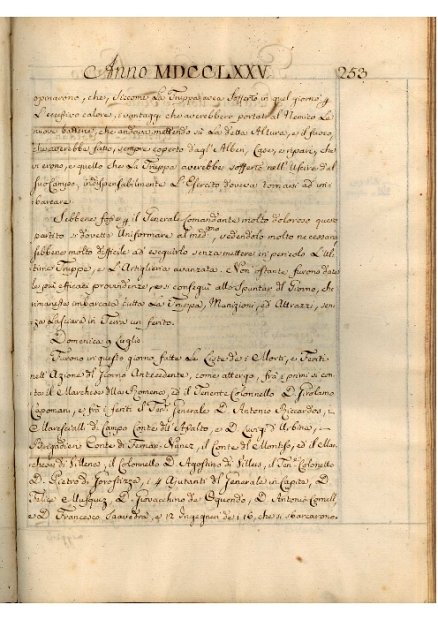 Anno MDCCLXXV. 253
opinarono, che, siccome la Truppa avea sofferto in quel giorno p
l'eccessivo calore, i vantaggi che averebbero portato al Nemico le
nuove batterie, che andava mettendo su la detta Altura, e il fuoco,
che averebbe fatto, sempre coperto dagl' Alberi, Case, e ripari, che
vi erono, e quello che la Truppa averebbe sofferto nell' Uscire dal
suo Campo, indispensabilmente l' Esercito doveva tornarsi ad im-
barcare.
Sebbene fosse p il Generale Comandante molto doloroso questo
partito si dovette Uniformare al med.mo, vedendolo molto necessario
sebbene molto difficile ad eseguirlo senza mettere in pericolo l' Ul-
time Truppe, e l' Artiglieria avanzata. Non ostante furono date
le più efficaci provvidenze, e si conseguì allo spuntar del Giorno, che
rimanesse imbarcata tutta la Truppa, Munizioni, ed Attrazzi, sen-
za lasciare in Terra un ferito.
Domenica 9 Luglio
Furono in questo giorno fatte le Liste de i Morti, e Feriti
nell' Azione del giorno Antecedente, come attergo, frà è primi si con-
ta il Marchese della Romana, ed il Tenente Colonnello D. Girolamo
Capomani, e frà i feriti il Ten. Generale D. Antonio Riccardos, i
Marescialli di Campo Conte di Asalto, e D. Luigi d' Urbina,
Brigadieri Conte di Fernan-Nunez, il Conte del Montijo, ed il Mar-
chese di Villena, il Colonnello D. Agostino di Villus, il Ten. Colonello
D. Pietro di Gorostizza, i 4 Ajutanti del Generale in Capite, D.
Felice Musquiz, D. Giovacchino de Oquendo, D. Antonio Cornell
e D. Francesco Saavedra, e 12 Ingegneri de i 16, che si sbarcarono.